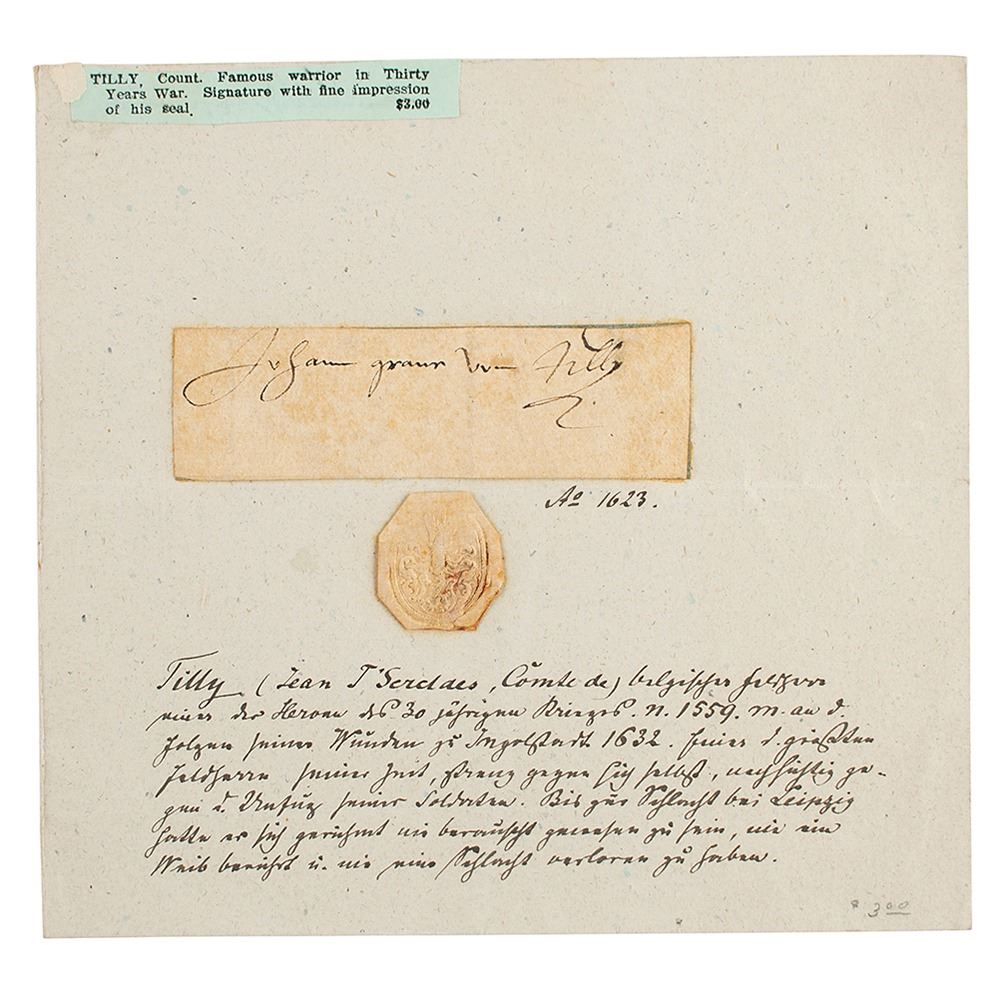 TILLY, Count. Famous warrior in Thirty
Years War. Signature with fine impression
of his seal. $3.00
Johann graue von Tilly
Aº 1623.
Tilly (Jean T'Serclaes, Comte de) belgischer Feldherr
einer der Heroen des 30 jährigen Krieges. n. 1559. m. an d.
Folgen seiner Wunden zu Ingolstadt 1632. Einer d. größten
Feldherrn seiner Zeit, streng gegen sich selbst, nachsichtig ge-
gen d. Unfug seiner Soldaten. Bis zur Schlacht bei Leipzig
hatte er sich gerühmt nie berauscht gewesen zu sein, nie ein
Weib berührt u. nie eine Schlacht verloren zu haben.
$ 3.00